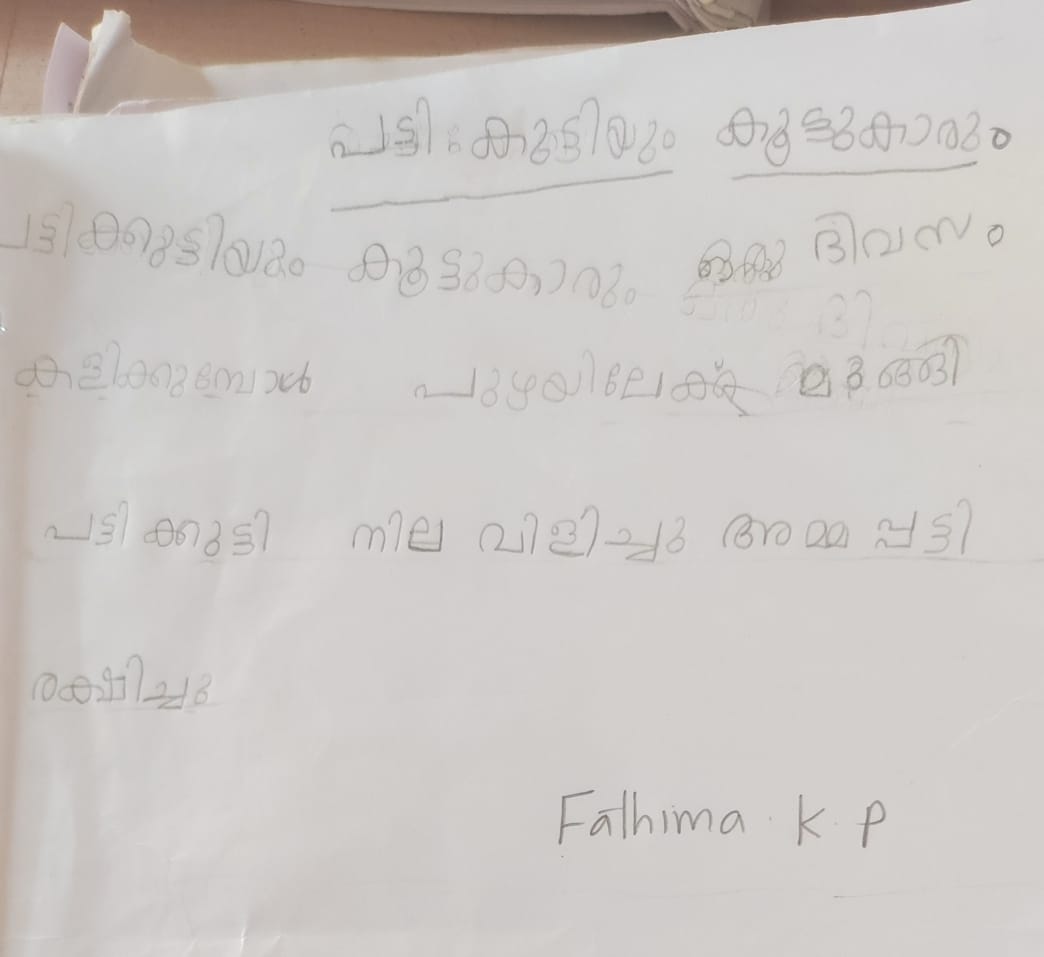 പട്ടി കുട്ടിയും കൂട്ടുകാരും
പട്ടിക്കുട്ടിയും കൂട്ടുകാരും ഒരു ദിവസം
കളിക്കുമ്പോൾ പുഴയിലേക്ക്
പട്ടിക്കുട്ടി നില വിളിച്ചു അമ്മ പ്പട്ടി
രക്ഷിച്ചു
Fathima. K. P